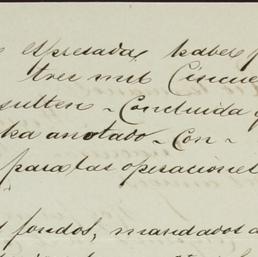 espresada, haber
tres mil Cincue
sulten - Concluida
ha anotado - Con -
para las operaciones
fondos, mandados